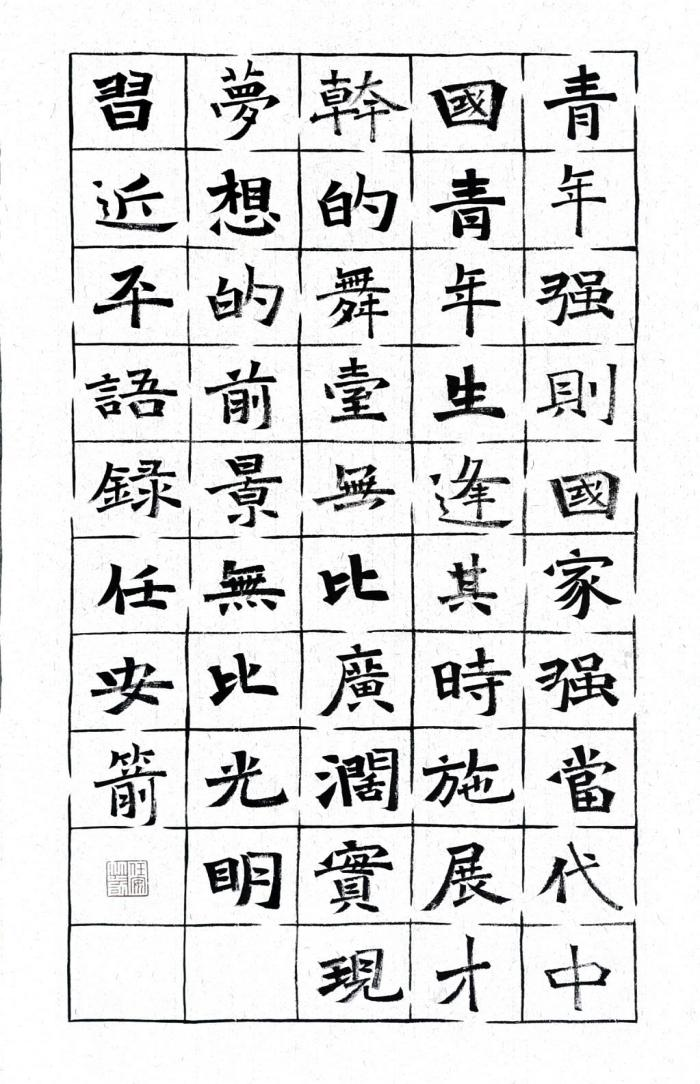 青年强則國家强當代中
國青年生逢其時施展才
幹的舞臺無比廣濶實現
夢想的前景無比光明
習近平語録任安箭